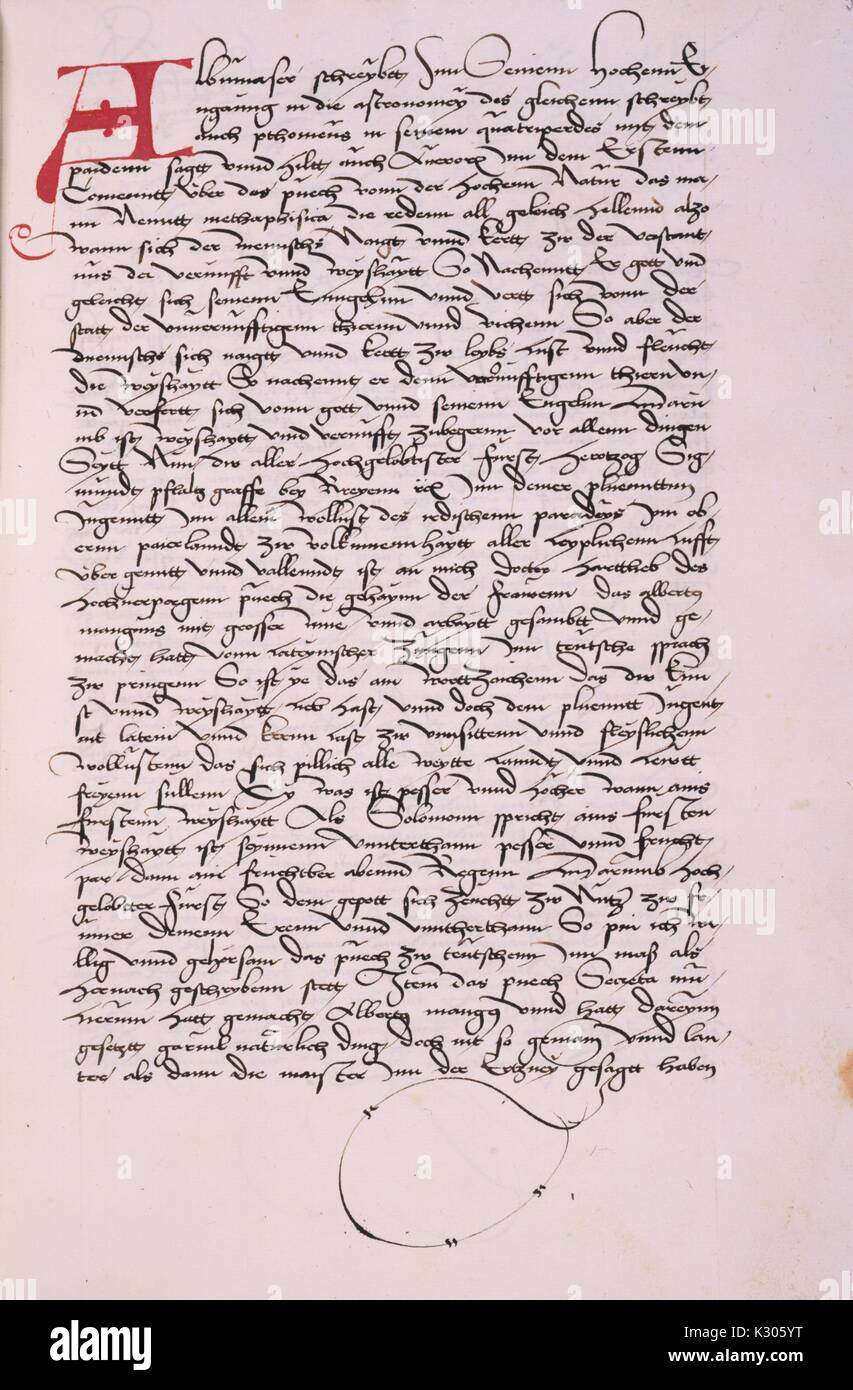 Albumaser schreybtt Inn Seinenn Hochenn Ein
ngaung in die astronomey des gleichenn schreybt
auch ptholomeus in seinem quatriperdes mit dem
paidenn sagtt vnnd hiltt auch Inn dem Erstenn
Comenntt über das puech vonn der Hochenn Natur das ma
nn Nenntt methaphisica die redenn all geleich hellennd also
wann sich der mennsch Naigtt vnnd kertt zw der verstant
nus der vernnfft vnnd weyshaytt So Nachenntt Er gott vnd
geleicht sich seinenn Enngelnn vnnd vertt sich vonn der
statt der vnuernnfftigenn thiernn vnnd vichenn So aber der
mennsch sich naigtt vnnd kertt zw leybs lust vnnd fleucht
die weyshaytt So nachennt er denn vnuernnfftigenn thiern vn
nd verfertt sich vonn gott vnnd seinenn Engelnn Und daru
mb ist weyshaytt vnnd vernnfft zubegernn vor allenn dingen
Seytt Nun dw aller Hochgelobtister fürst Hertzog Sig
mundt pfaltz graffe bey Reyenn Inn deiner pluennttnn
Jugenntt Inn allem wollust des irdischenn paradeys Inn ob
ernn paierlanndt zw volkumenhaytt aller leyplichenn lufft
über genntt vnnd vallenndt ist an mich doctor Harttlieb des
Hochuerporgenn puech die gehaym der frawenn das albertus
mangnus mit grosser mue vnnd arbaytt gesambtt vnnd ge
macht hatt vonn lateynischer Zungenn Inn teutsche sprach
zw pringenn So ist ye das ain worttzaichenn das dw kun
st vnnd weyshaytt lieb hast vnnd doch dem pluenntt Jugent
nit latein vnnd kainn last zw vnnsittenn vnnd fleyslichenn
wollustenn das sich pillich alle weytte lanndt vnnd lewtt
freyenn sullenn Ey was ist pesser vnnd hocher wann ains
fürstenn weyshaytt Als Solomonn spricht ains fürsten
weyshaytt ist seynnenn vnntterthann pesser vnnd frucht
par dann ain fruchtber abennd Regenn Und darumb Hoch
gelobtter fürst So dein gepott sich zeucht zw Nutz zw fr
umer deinenn Erenn vnnd vnntherthann So pin ich wi
llig vnnd gehorsam das puech zw teutschenn Inn maß als
Hernach geschrybenn stett Item das puech Secreta mu
lierum hatt gemacht Albertus mangnus vnnd hatt dareynn
gesetzt garnit naturlich ding doch nit so gemain vnnd lau
tter als dann die maister Inn der Ertzney gesagtt haben
alamy
alamy stock photo
K305YT
www.alamy.com